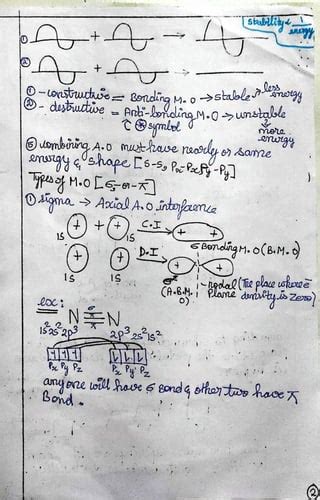 stability ∝ 1/energy
① + →
② + →
① - constructive = Bonding M.O → stable → less energy
② - destructive = Anti-bonding M.O → unstable
↓ more energy
* symbol
⑤ combining A.O must have nearly or same
energy & shape [s-s, Px-Px, Py-Py]
Types of M.O [σ - or - π]
① sigma → Axial A.O interference
+ + + C.I → + +
1S 1S σ Bonding M.O (B.M.O)
+ + D.I → + -
1S 1S σ* (A.B.M.O) nodal Plane (The place where e⁻ density is zero)
ex:
N σ≡π N
1s²2s²2p³ 2p³2s²1s²
1 1 1 1 1 1
Px Py Pz Px Py Pz
any one will have σ Bond & other two have π
Bond.
②